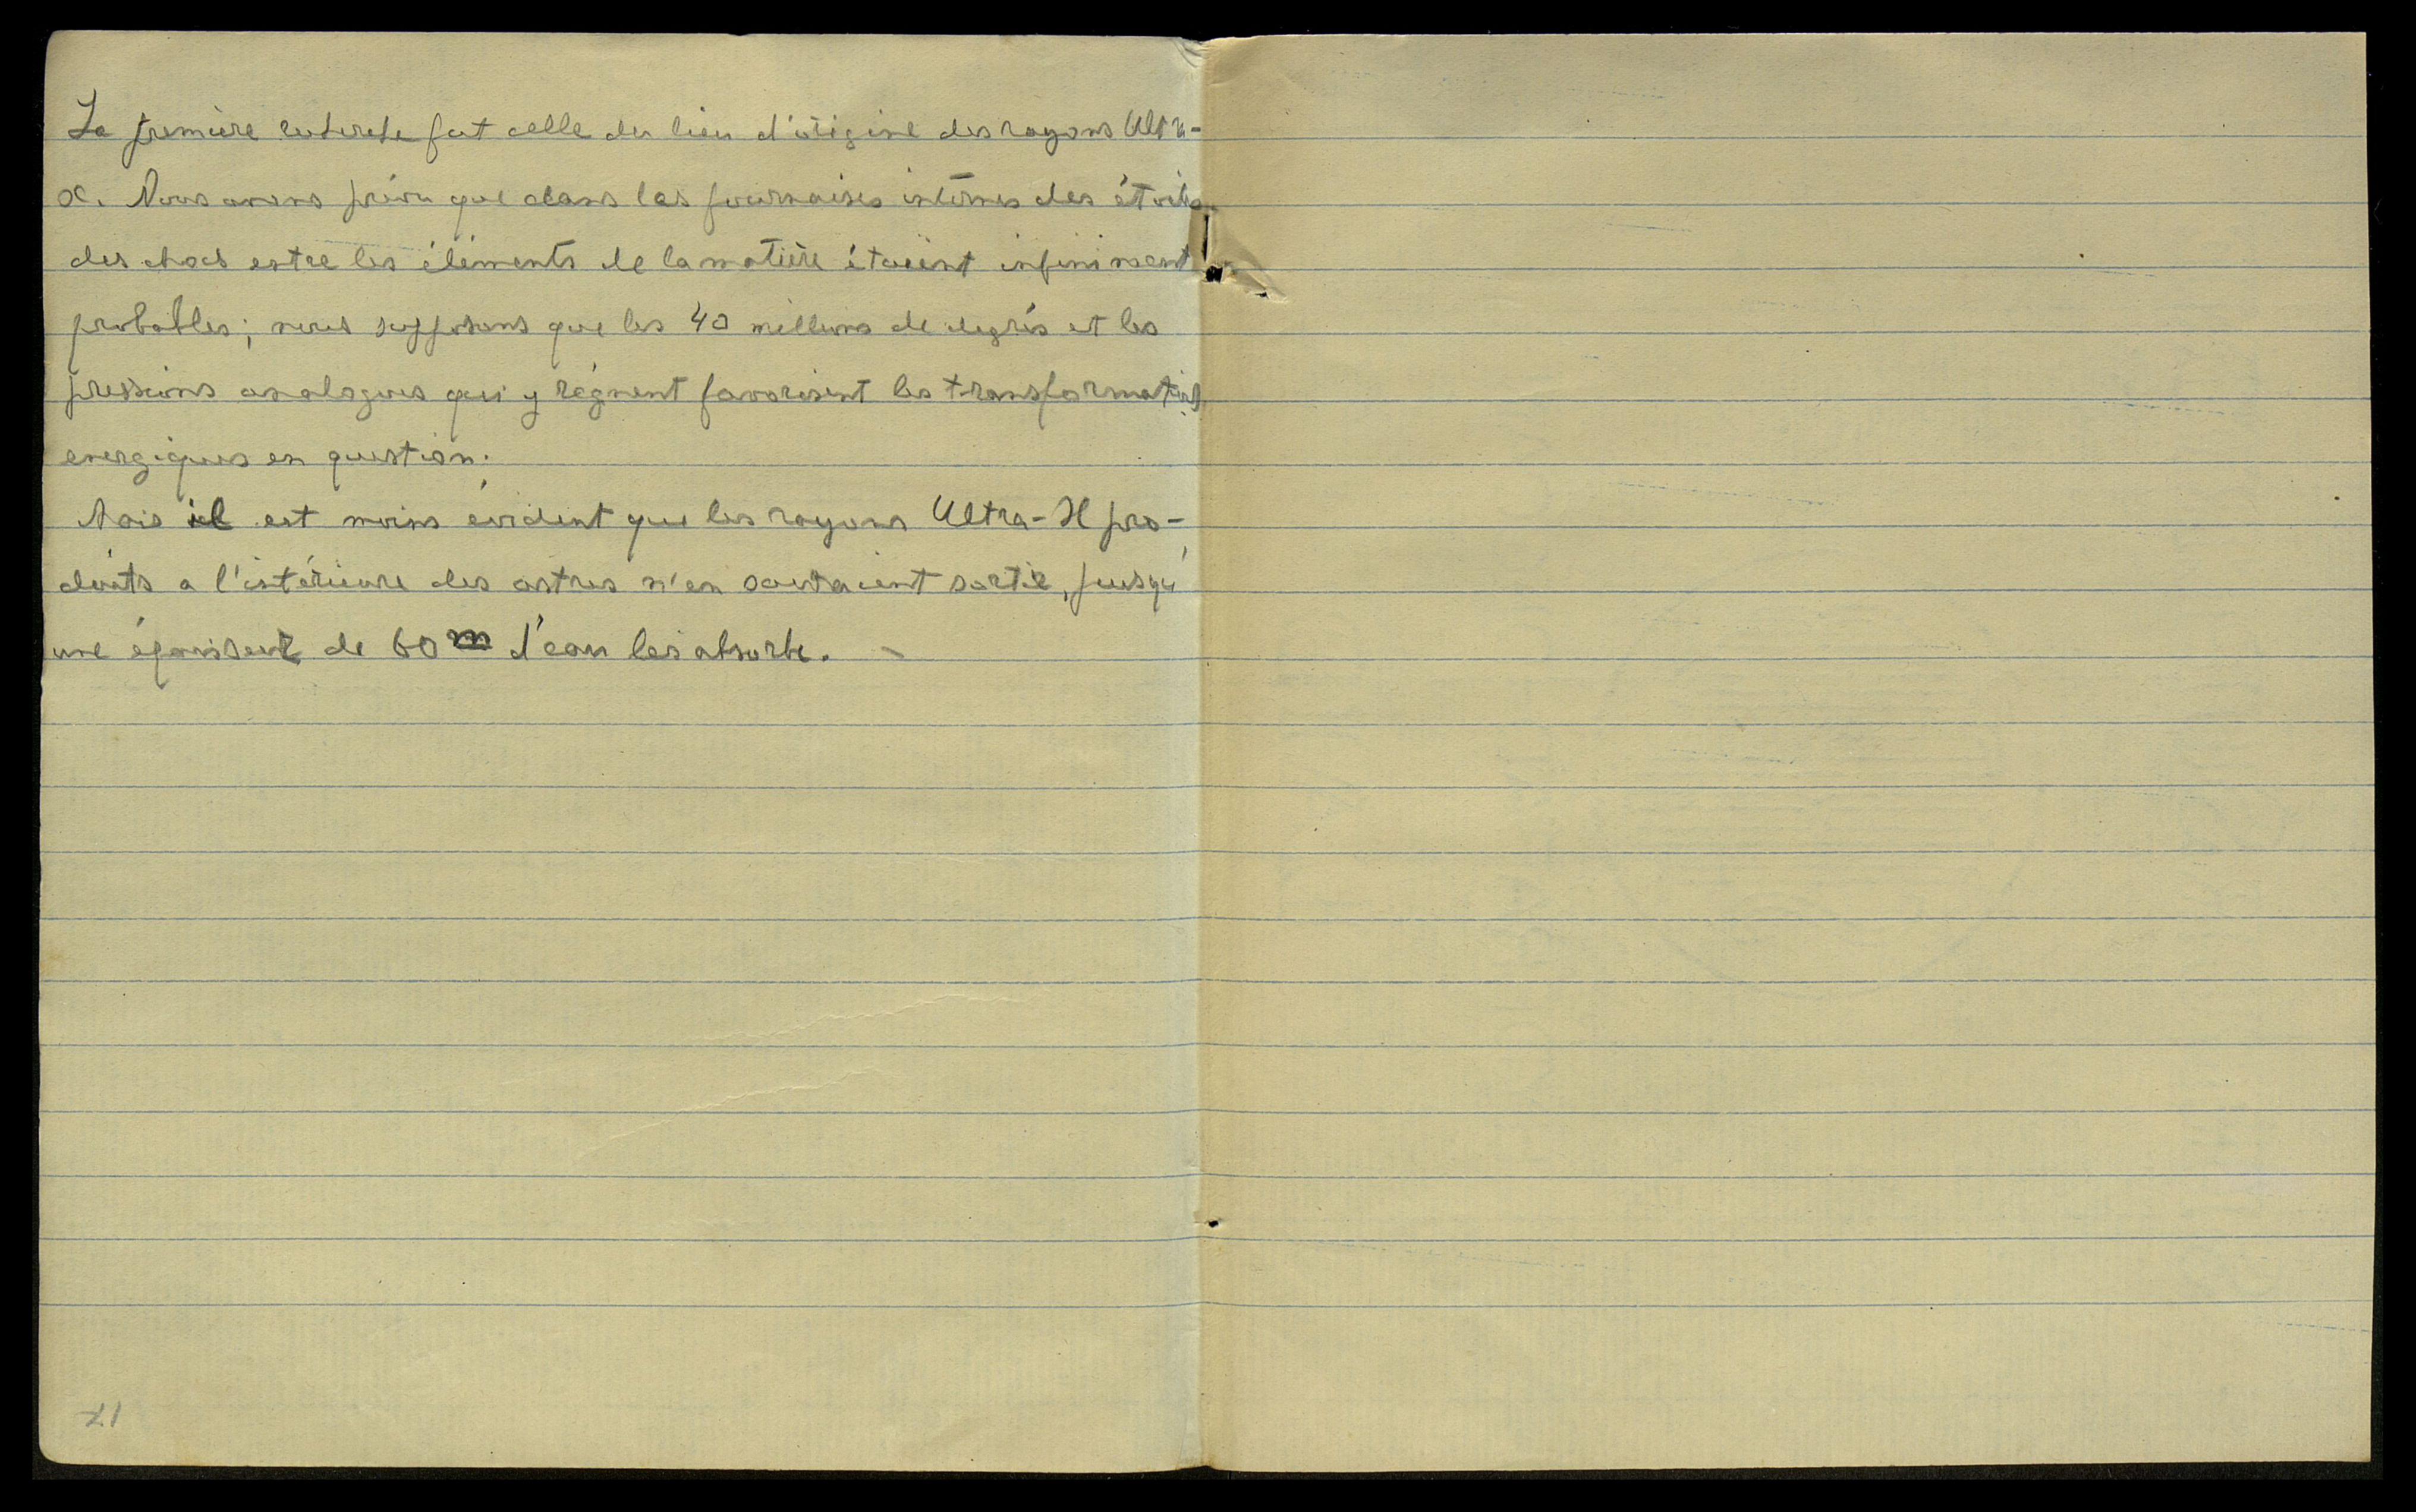 La première recherche fut celle du lieu d'origine des rayons Ultra-
X. Nous avons prévu que dans les fournaises internes des étoiles
des chocs entre les éléments de la matière étaient infiniment
probables; nous supposons que les 40 millions de degrés et les
pressions analogues qui y règnent favorisent les transformations
energiques en question.
Mais il est moins évident que les rayons Ultra-X pro-
duits a l'intérieure des astres n'en sauraient sortir, jusqu'
une épaisseur de 60 m d'eau les absorbe.
21